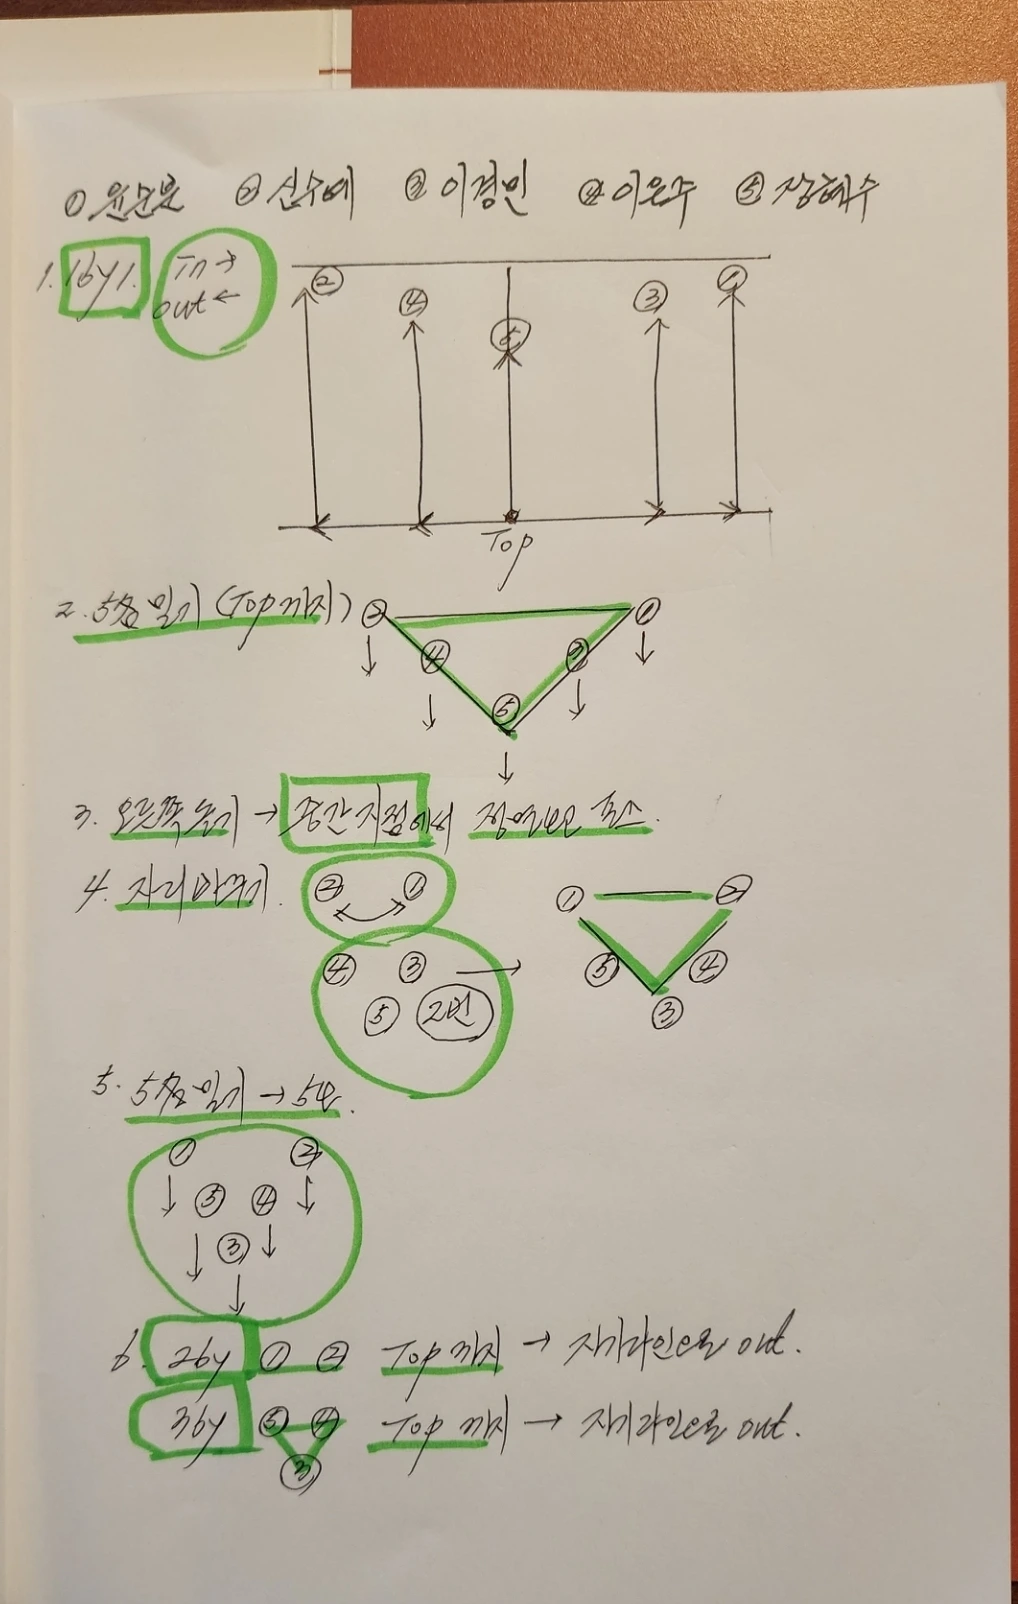 ① 윤순문 ② 신수예 ③ 이경민 ④ 이은주 ⑤ 장혜수
1. 1by1. In →
out ←
② ④ ⑤ ③ ①
Top
2. 5名 밀기 (Top까지) ② ①
④ ③
⑤
3. 오른쪽 돌기 → 중간지점에서 정면보고 포즈.
4. 자리 바꾸기. ② ① ① ②
④ ③ → ⑤ ④
⑤ 2번 ③
5. 5名 밀기 → 5보.
① ②
⑤ ④
③
6. 2by ① ② Top까지 → 자기라인으로 out.
3by ⑤ ④ Top까지 → 자기라인으로 out.
③